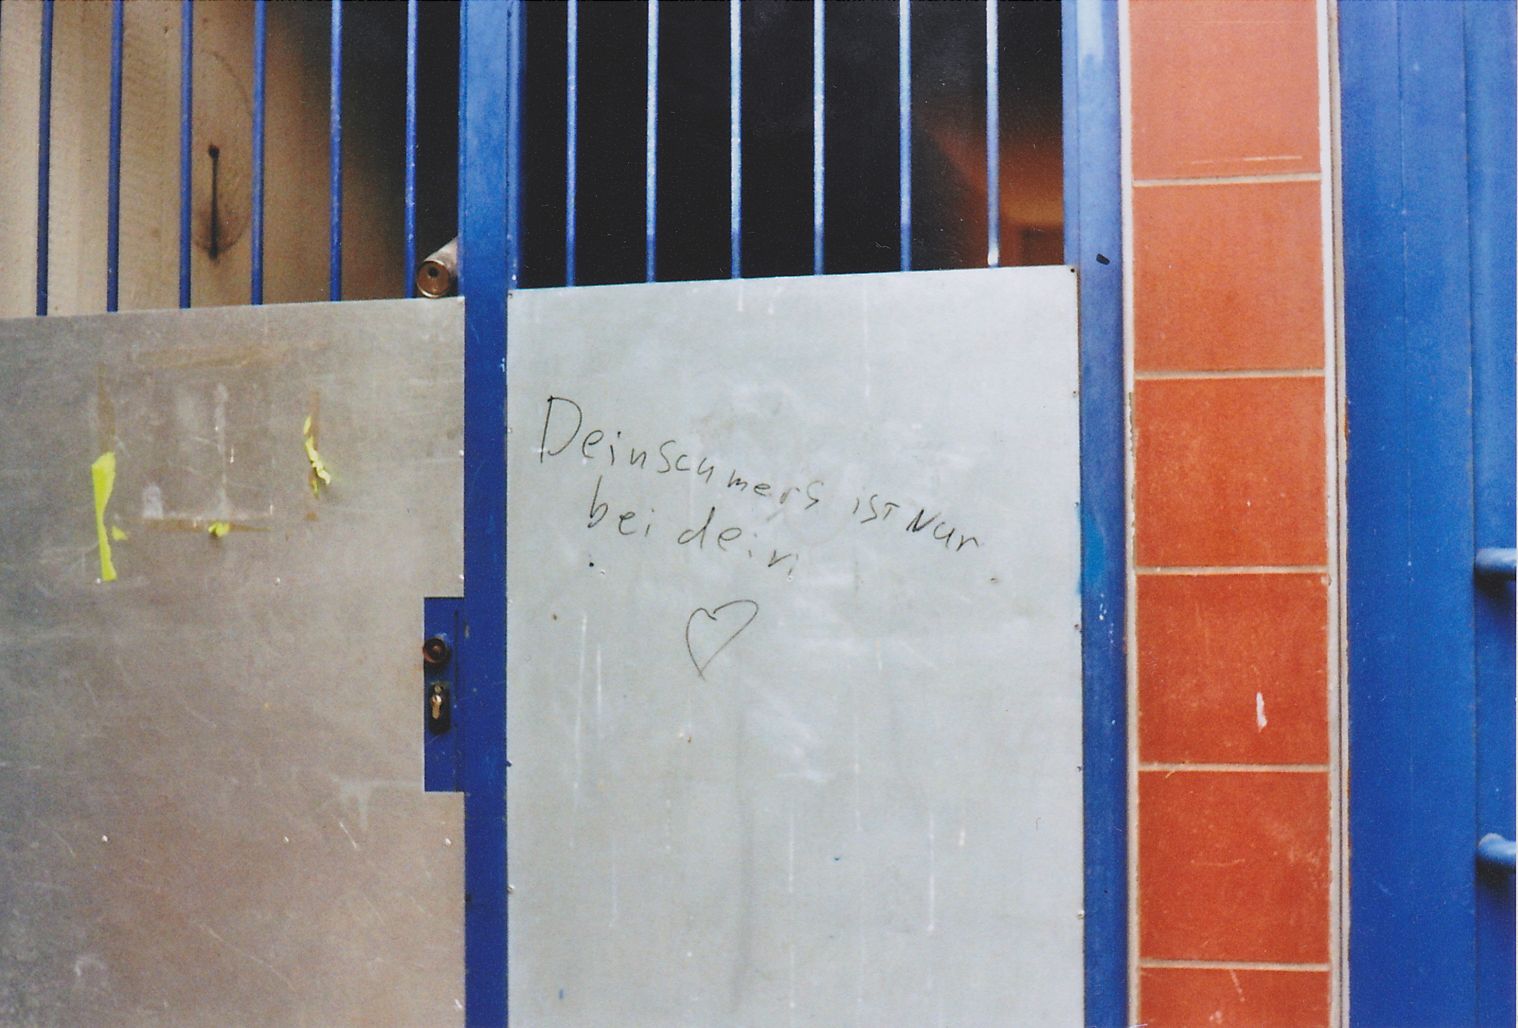 Deinschmers ist Nur
bei dein